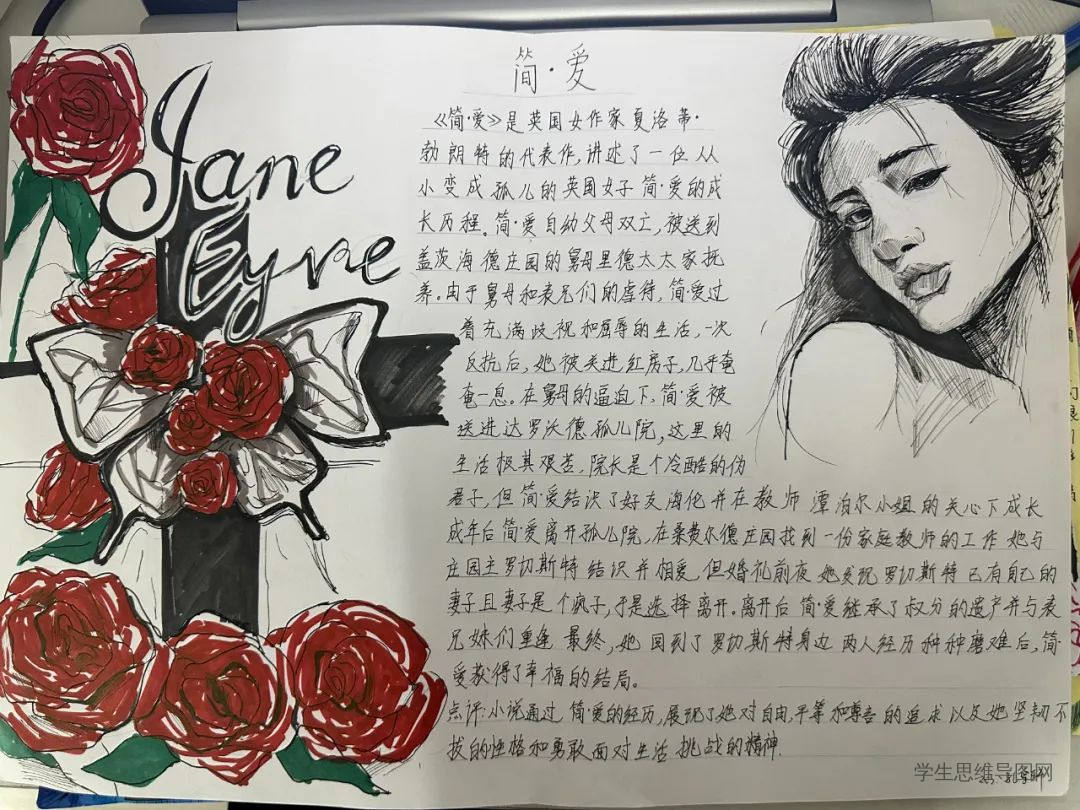 Jane
Eyre
简·爱
《简·爱》是英国女作家夏洛蒂·
勃朗特的代表作,讲述了一位从
小变成孤儿的英国女子简·爱的成
长历程。简·爱自幼父母双亡,被送到
盖茨海德庄园的舅母里德太太家抚
养。由于舅母和表兄们的虐待,简·爱过
着充满歧视和屈辱的生活,一次
反抗后,她被关进红房子,几乎奄
奄一息。在舅母的逼迫下,简·爱被
送进达罗沃德孤儿院,这里的
生活极其艰苦,院长是个冷酷的伪
君子,但简·爱结识了好友海伦并在教师谭泊尔小姐的关心下成长
成年后简·爱离开孤儿院,在桑费尔德庄园找到一份家庭教师的工作她与
庄园主罗切斯特结识并相爱,但婚礼前夜她发现罗切斯特已有自己的
妻子且妻子是个疯子,于是选择离开。离开后简·爱继承了叔父的遗产并与表
兄妹们重逢最终,她回到了罗切斯特身边两人经历种种磨难后,简·
爱获得了幸福的结局。
点评:小说通过简·爱的经历,展现了她对自由,平等和尊言的追求以及她坚韧不
拔的性格和勇敢面对生活挑战的精神.
学生思维导图网